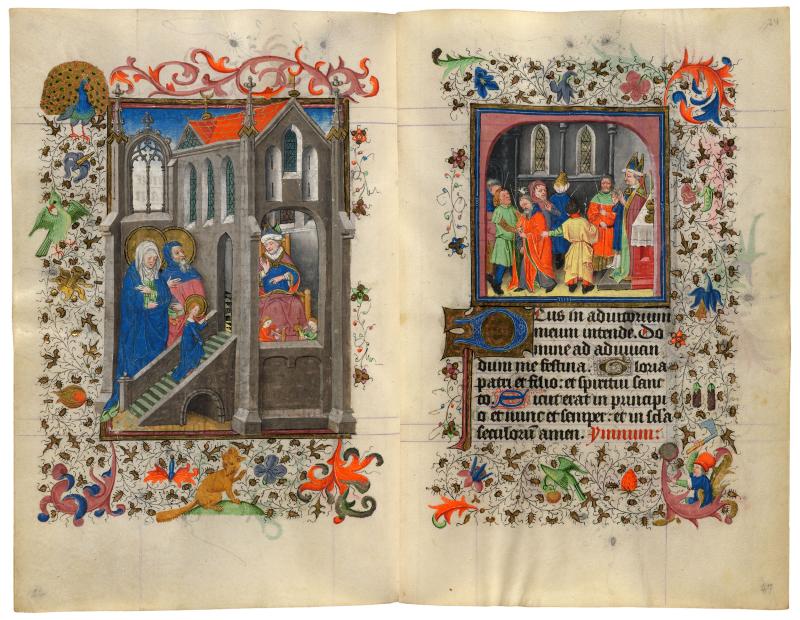 24
Deus in adiutorium
meum intende. Do
mine ad adiuuan
dum me festina. Gloria
patri et filio: et spiritui sanc
to. Sicut erat in principi
o et nunc et semper: et in scla
seculorū amen. Ymnum: